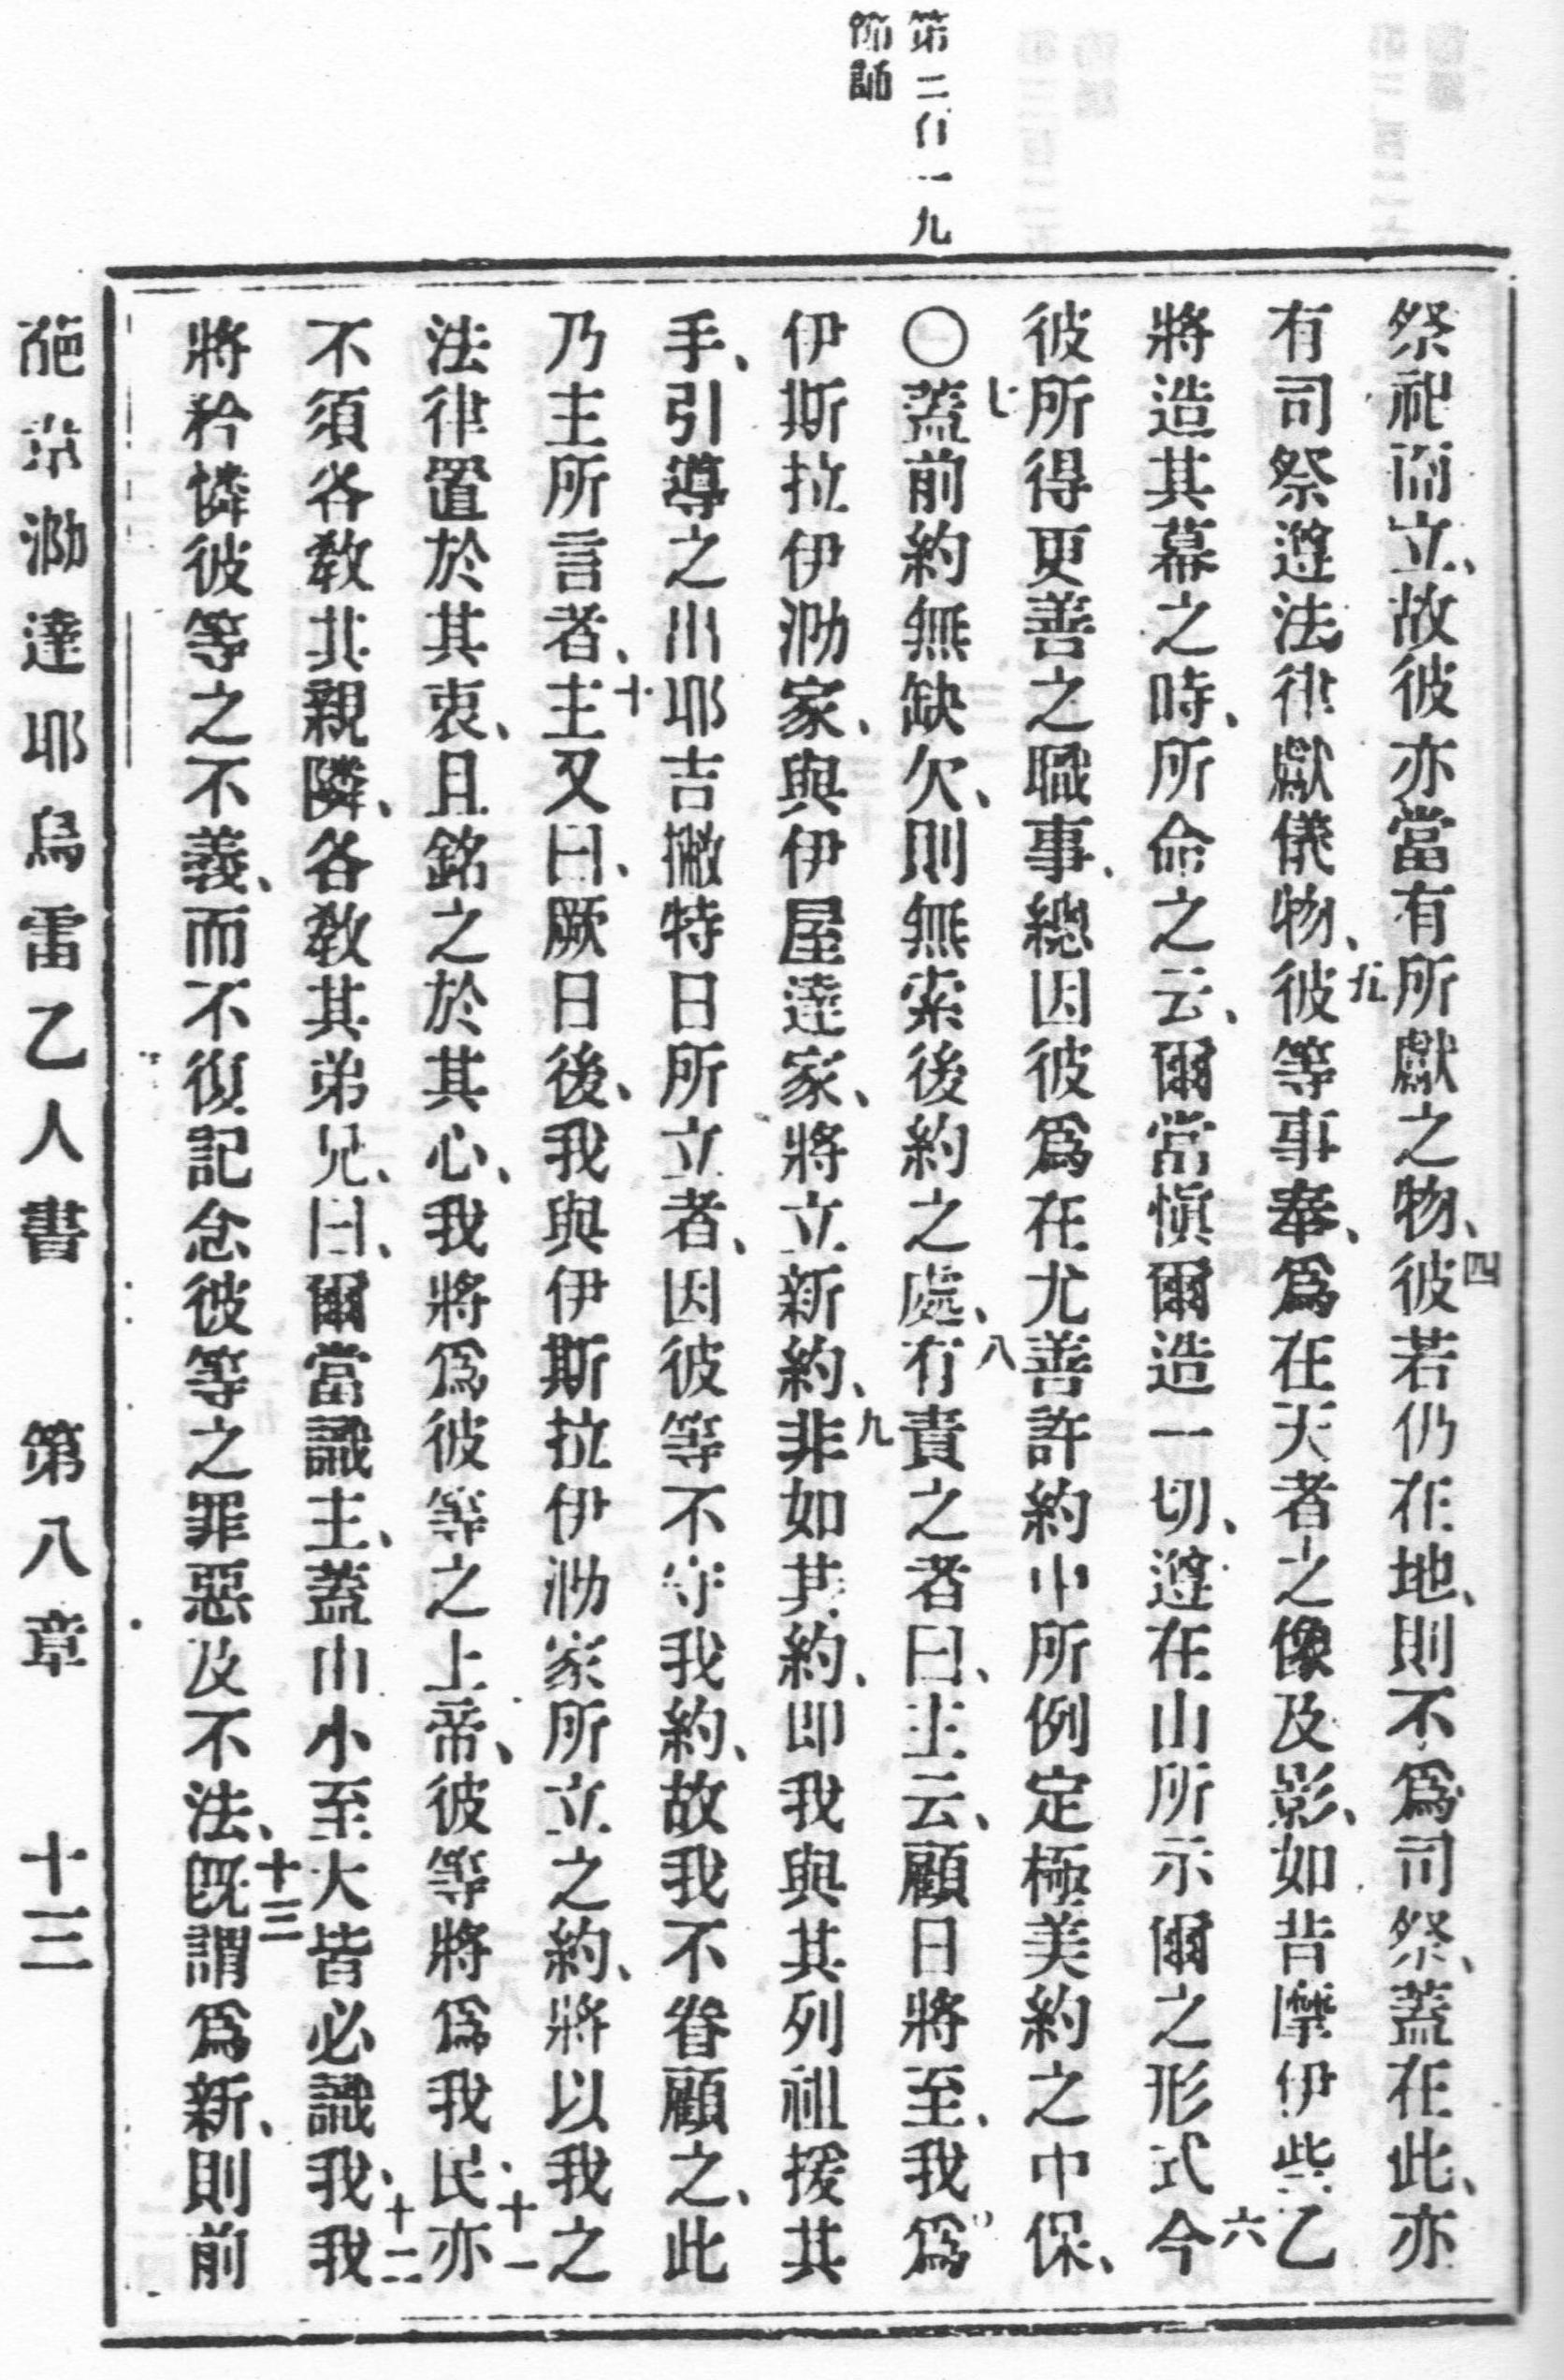 第二百一九
節誦
祭祀而立、故彼亦當有所獻之物、四彼若仍在地、則不爲司祭、蓋在此、亦
有司祭遵法律獻儀物、九彼等事奉、爲在天者之像及影、如昔摩伊些乙
將造其幕之時、所命之云、爾當愼爾造一切、遵在山所示爾之形式六今
彼所得更善之職事、總因彼爲在尤善許約中所例定極美約之中保、
〇七蓋前約無缺欠、則無索後約之處、八有責之者曰、主云、顧日將至、我爲
伊斯拉伊泐家、與伊屋達家、將立新約、九非如其約、卽我與其列祖援其
手、引導之出耶吉撇特日所立者、因彼等不守我約、故我不眷顧之、此
乃主所言者、十主又曰、厥日後、我與伊斯拉伊泐家所立之約、將以我之
法律置於其衷、且銘之於其心、我將爲彼等之上帝、彼等將爲我民、十一亦
不須各教其親隣、各教其弟兄、曰、爾當識主、蓋由小至大皆必識我、十二我
將矜憐彼等之不義、而不復記念彼等之罪惡及不法、十三旣謂爲新、則前
達耶烏雷乙人書 第八章 十三